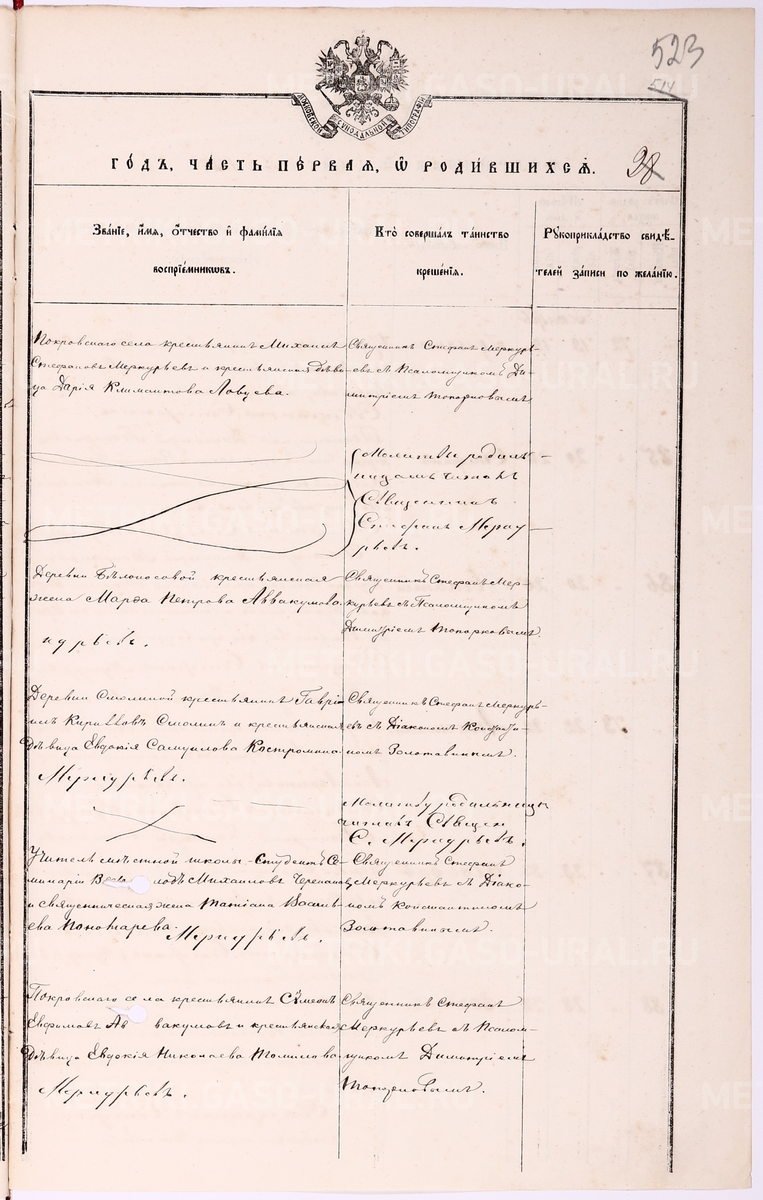 523
514
МОСКОВСКОЙ СѴНОДАЛЬНОЙ ТИПОГРАФІИ
го́дъ, ча́сть пе́рвая, ѡ҆ роди́вшихсѧ.
38
Зва́нїе, и҆́мѧ, ѻ҆́тчество и҆ фами́лїѧ
воспрїе́мникѡвъ.
Кто̀ соверша́лъ та́инство
креще́нїѧ.
Рꙋкоприкла́дство свидѣ́-
телей за́писи по жела́нїю.
Покровскаго села крестьянинъ Михаилъ
Стефановъ Меркурьевъ и крестьянская дѣви-
ца Дарія Климентова Ловцева.
Священникъ Стефанъ Меркурь-
евъ съ Псаломщикомъ Ди-
митріемъ Топорковымъ
Молитвы родиль-
ницамъ читалъ
Священникъ
Стефанъ Мерку-
рьевъ.
Деревни Бѣлоносовой крестьянская
жена Марѳа Петрова Аввакумова.
курьевъ.
Священникъ Стефанъ Мер-
курьевъ съ Псаломщикомъ
Димитріемъ Топорковымъ.
Деревни Смолиной крестьянинъ Гаврі-
илъ Кирилловъ Смолинъ и крестьянская
дѣвица Евдокія Самуилова Костромина
Меркурьевъ.
Священникъ Стефанъ Меркурь-
евъ съ Діакономъ Константи-
номъ Золотавинымъ.
Молитву родильницы
читалъ Священ.
С. Меркурьевъ.
Учитель мѣстной школы - Студентъ Се-
минаріи Всеволодъ Михаиловъ Черепановъ
и священническая жена Татіана Василь-
ева Пономарева. Меркурьевъ.
Священникъ Стефанъ
Меркурьевъ съ Діако-
номъ Константиномъ
Золотавинымъ.
Покровскаго села крестьянинъ Сѵмеонъ
Евфимовъ Аввакумовъ и крестьянская
дѣвица Евдокія Николаева Томилова
Меркурьевъ.
Священникъ Стефанъ
Меркурьевъ съ Псалом-
щикомъ Димитріемъ
Топорковымъ.
METRIKI.GASO-URAL.RU